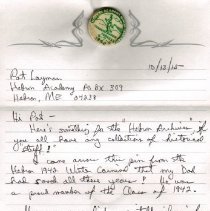 10/13/15
Pat Layman
Hebron Academy PO BX 309
Hebron, ME 04238
Hi Pat -
Here's something for the "Hebron Archives" if
you all have any collection of historical
stuff!
I came across this pin from the
Hebron 1940 Winter Carnival that my Dad
had saved all these years. He was
a proud member of the Class of 1942.